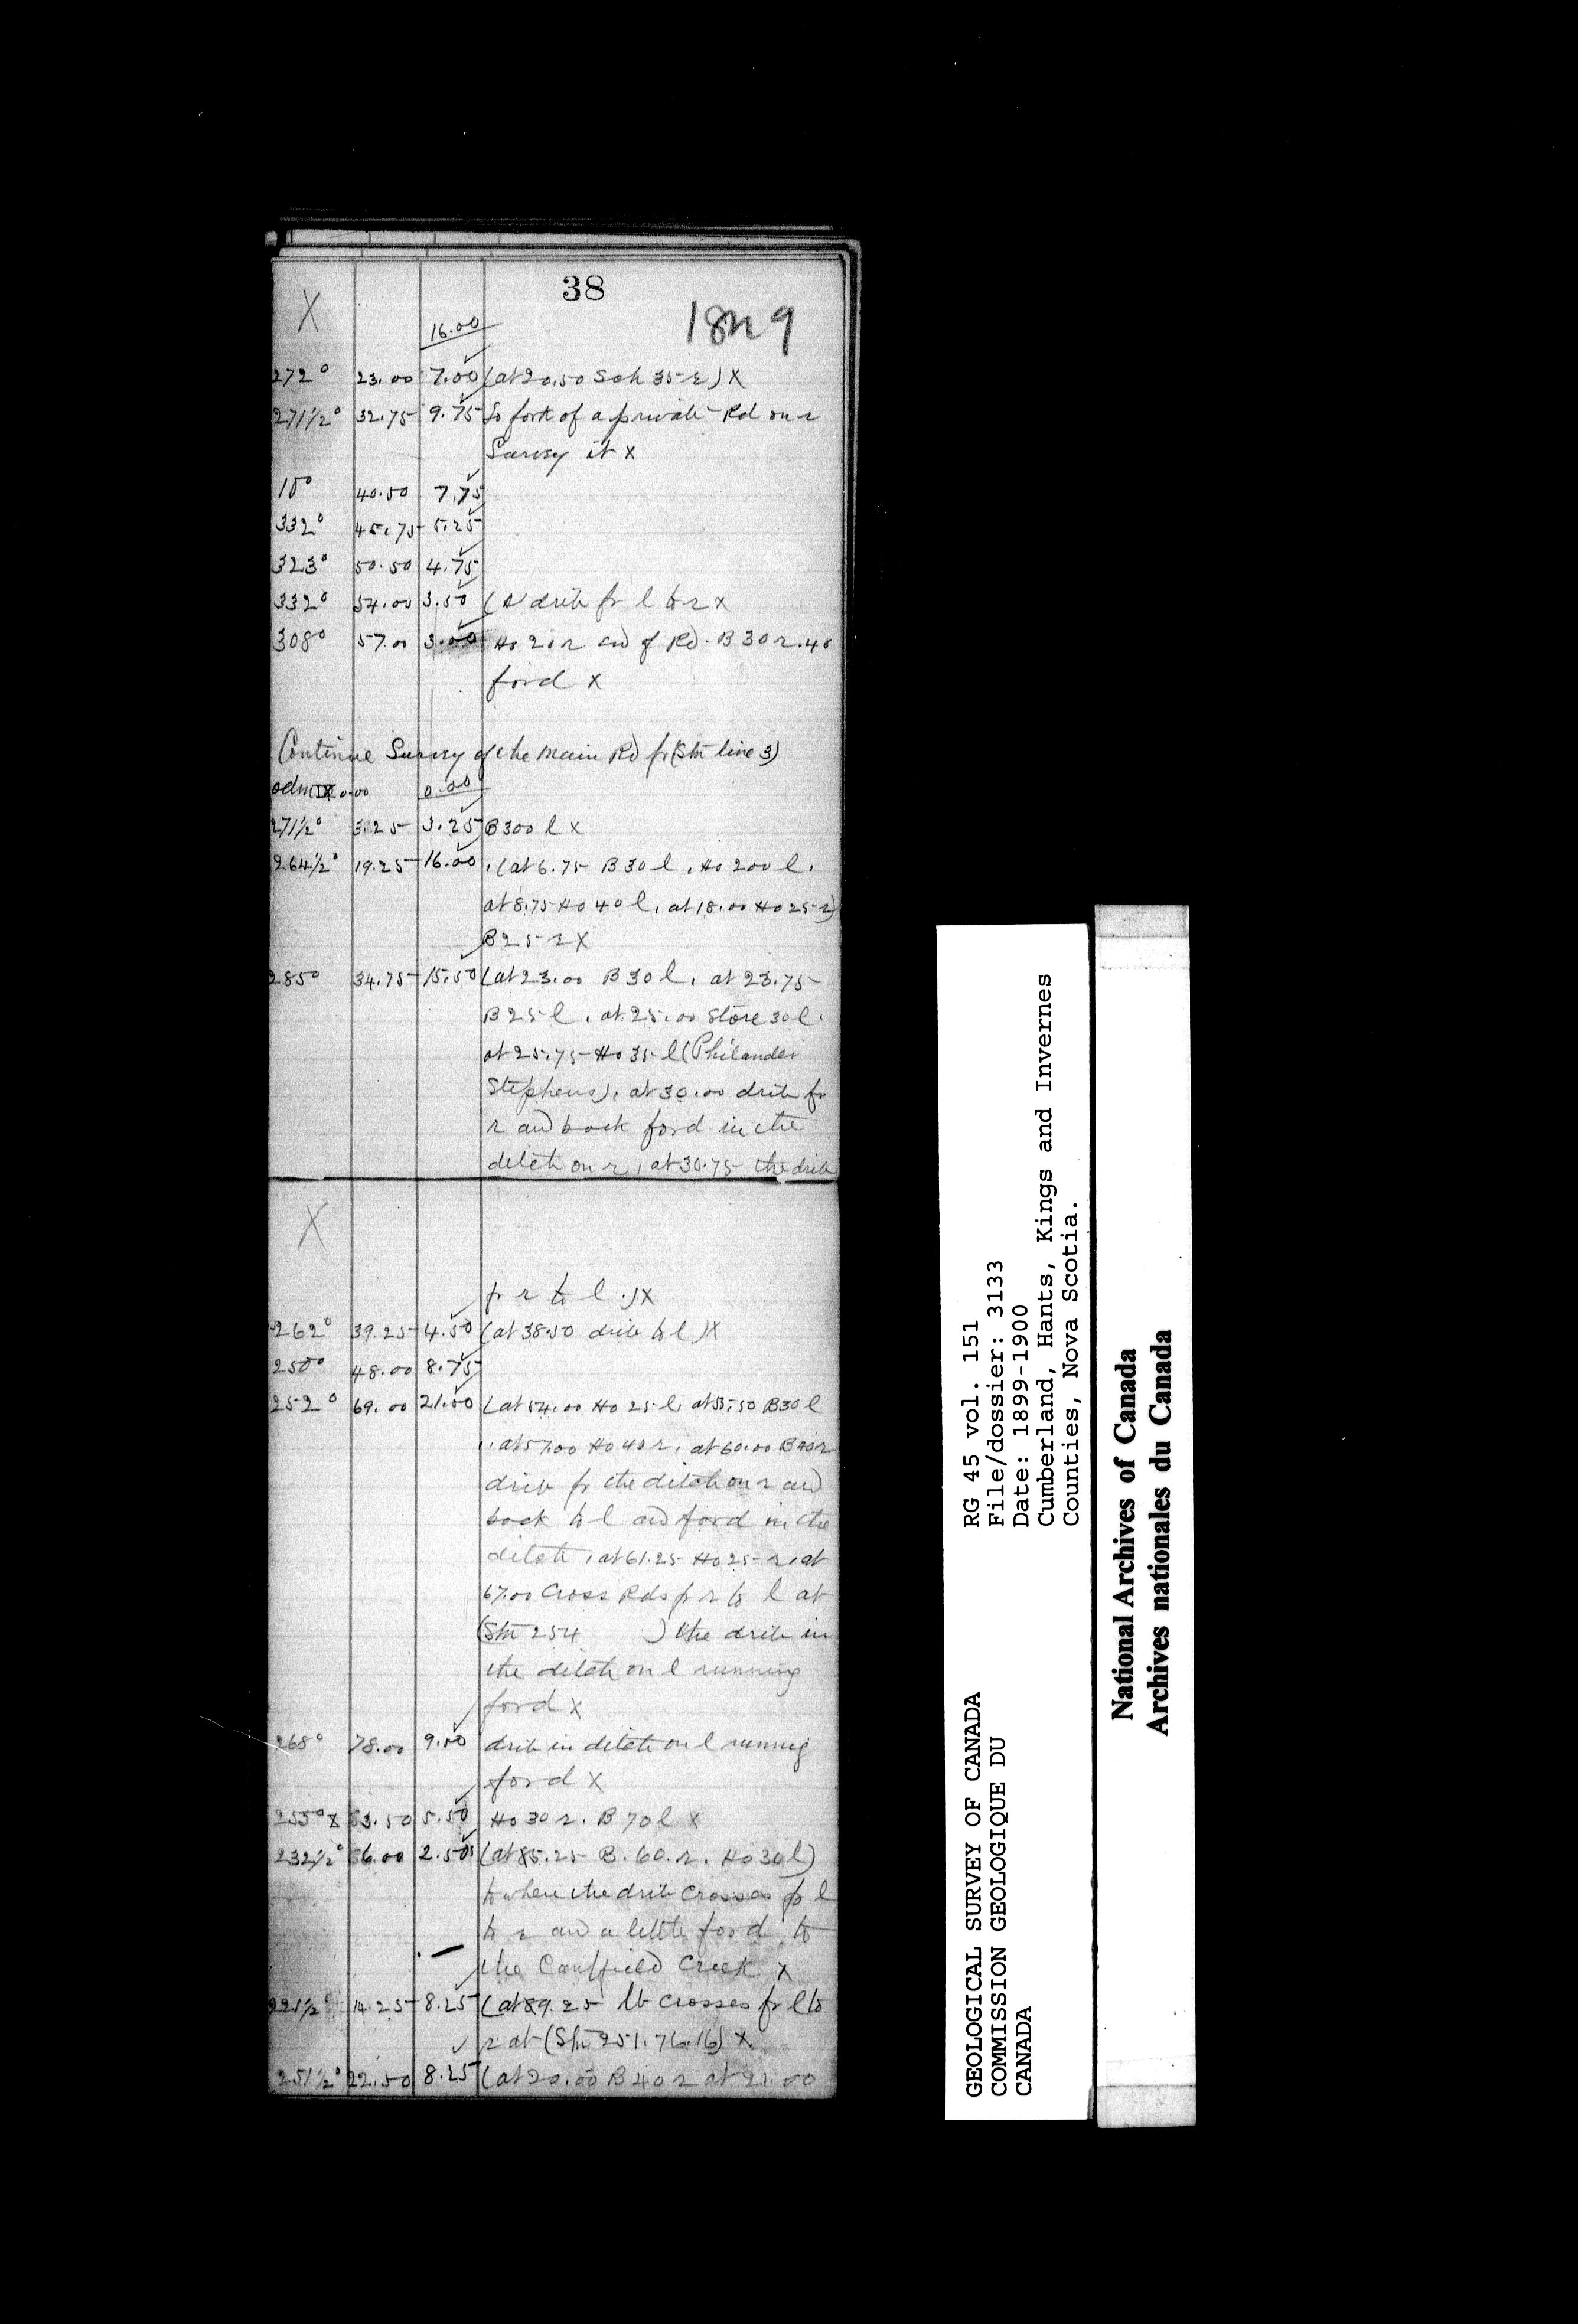 38
X
16.00
18m9
272° 23.00 7.00 (at 20.50 Sch 35 r) X
271½° 32.75 9.75 to fork of a private Rd on r
Survey it x
18° 40.50 7.75
332° 45.75 5.25
323° 50.50 4.75
332° 54.00 3.50 ( drib fr l to r x
308° 57.00 3.00 Ho 20 r end of Rd. B 30 r.
ford x
Continue Survey of the Main Rd fr (Stn line 3)
odm IX 0.00 0.00
271½° 3.25 3.25 B 300 l x
264½° 19.25 16.00 (at 6.75 B 30 l, Ho 200 l,
at 8.75 Ho 40 l, at 18.00 Ho 25 r)
B 25 r X
285° 34.75 15.50 (at 23.00 B 30 l, at 23.75
B 25 l, at 25.00 Store 30 l.
at 25.75 Ho 35 l (Philander
Stephens), at 30.00 drib fr
r and back ford in the
ditch on r, at 30.75 the drib
X
fr r to l.) X
262° 39.25 4.50 (at 38.50 drib to l) X
250° 48.00 8.75
252° 69.00 21.00 (at 54.00 Ho 25 l, at 55.50 B 30 l
, at 57.00 Ho 40 r, at 60.00 B r
drib fr the ditch on r and
back to l and ford in the
ditch, at 61.25 Ho 25 r, at
67.00 Cross Rds fr r to l at
(Stn 254 ) the drib in
the ditch on l running
ford x
268° 78.00 9.00 drib in ditch on l running
ford X
255° x 83.50 5.50 Ho 30 r. B 70 l x
232½° 86.00 2.50 (at 85.25 B. 60. r. Ho 30 l)
to where the drib crosses fr l
to r and a little ford to
the Creek x
221½° 14.25 8.25 (at 89.25 lb crosses fr l to
r at (Stn 251.76.16) X
251½° 22.50 8.25 (at 20.00 B 40 r at 21.00
RG 45 vol. 151
File/dossier: 3133
Date: 1899-1900
Cumberland, Hants, Kings and Invernes
Counties, Nova Scotia.
GEOLOGICAL SURVEY OF CANADA
COMMISSION GEOLOGIQUE DU
CANADA
National Archives of Canada
Archives nationales du Canada